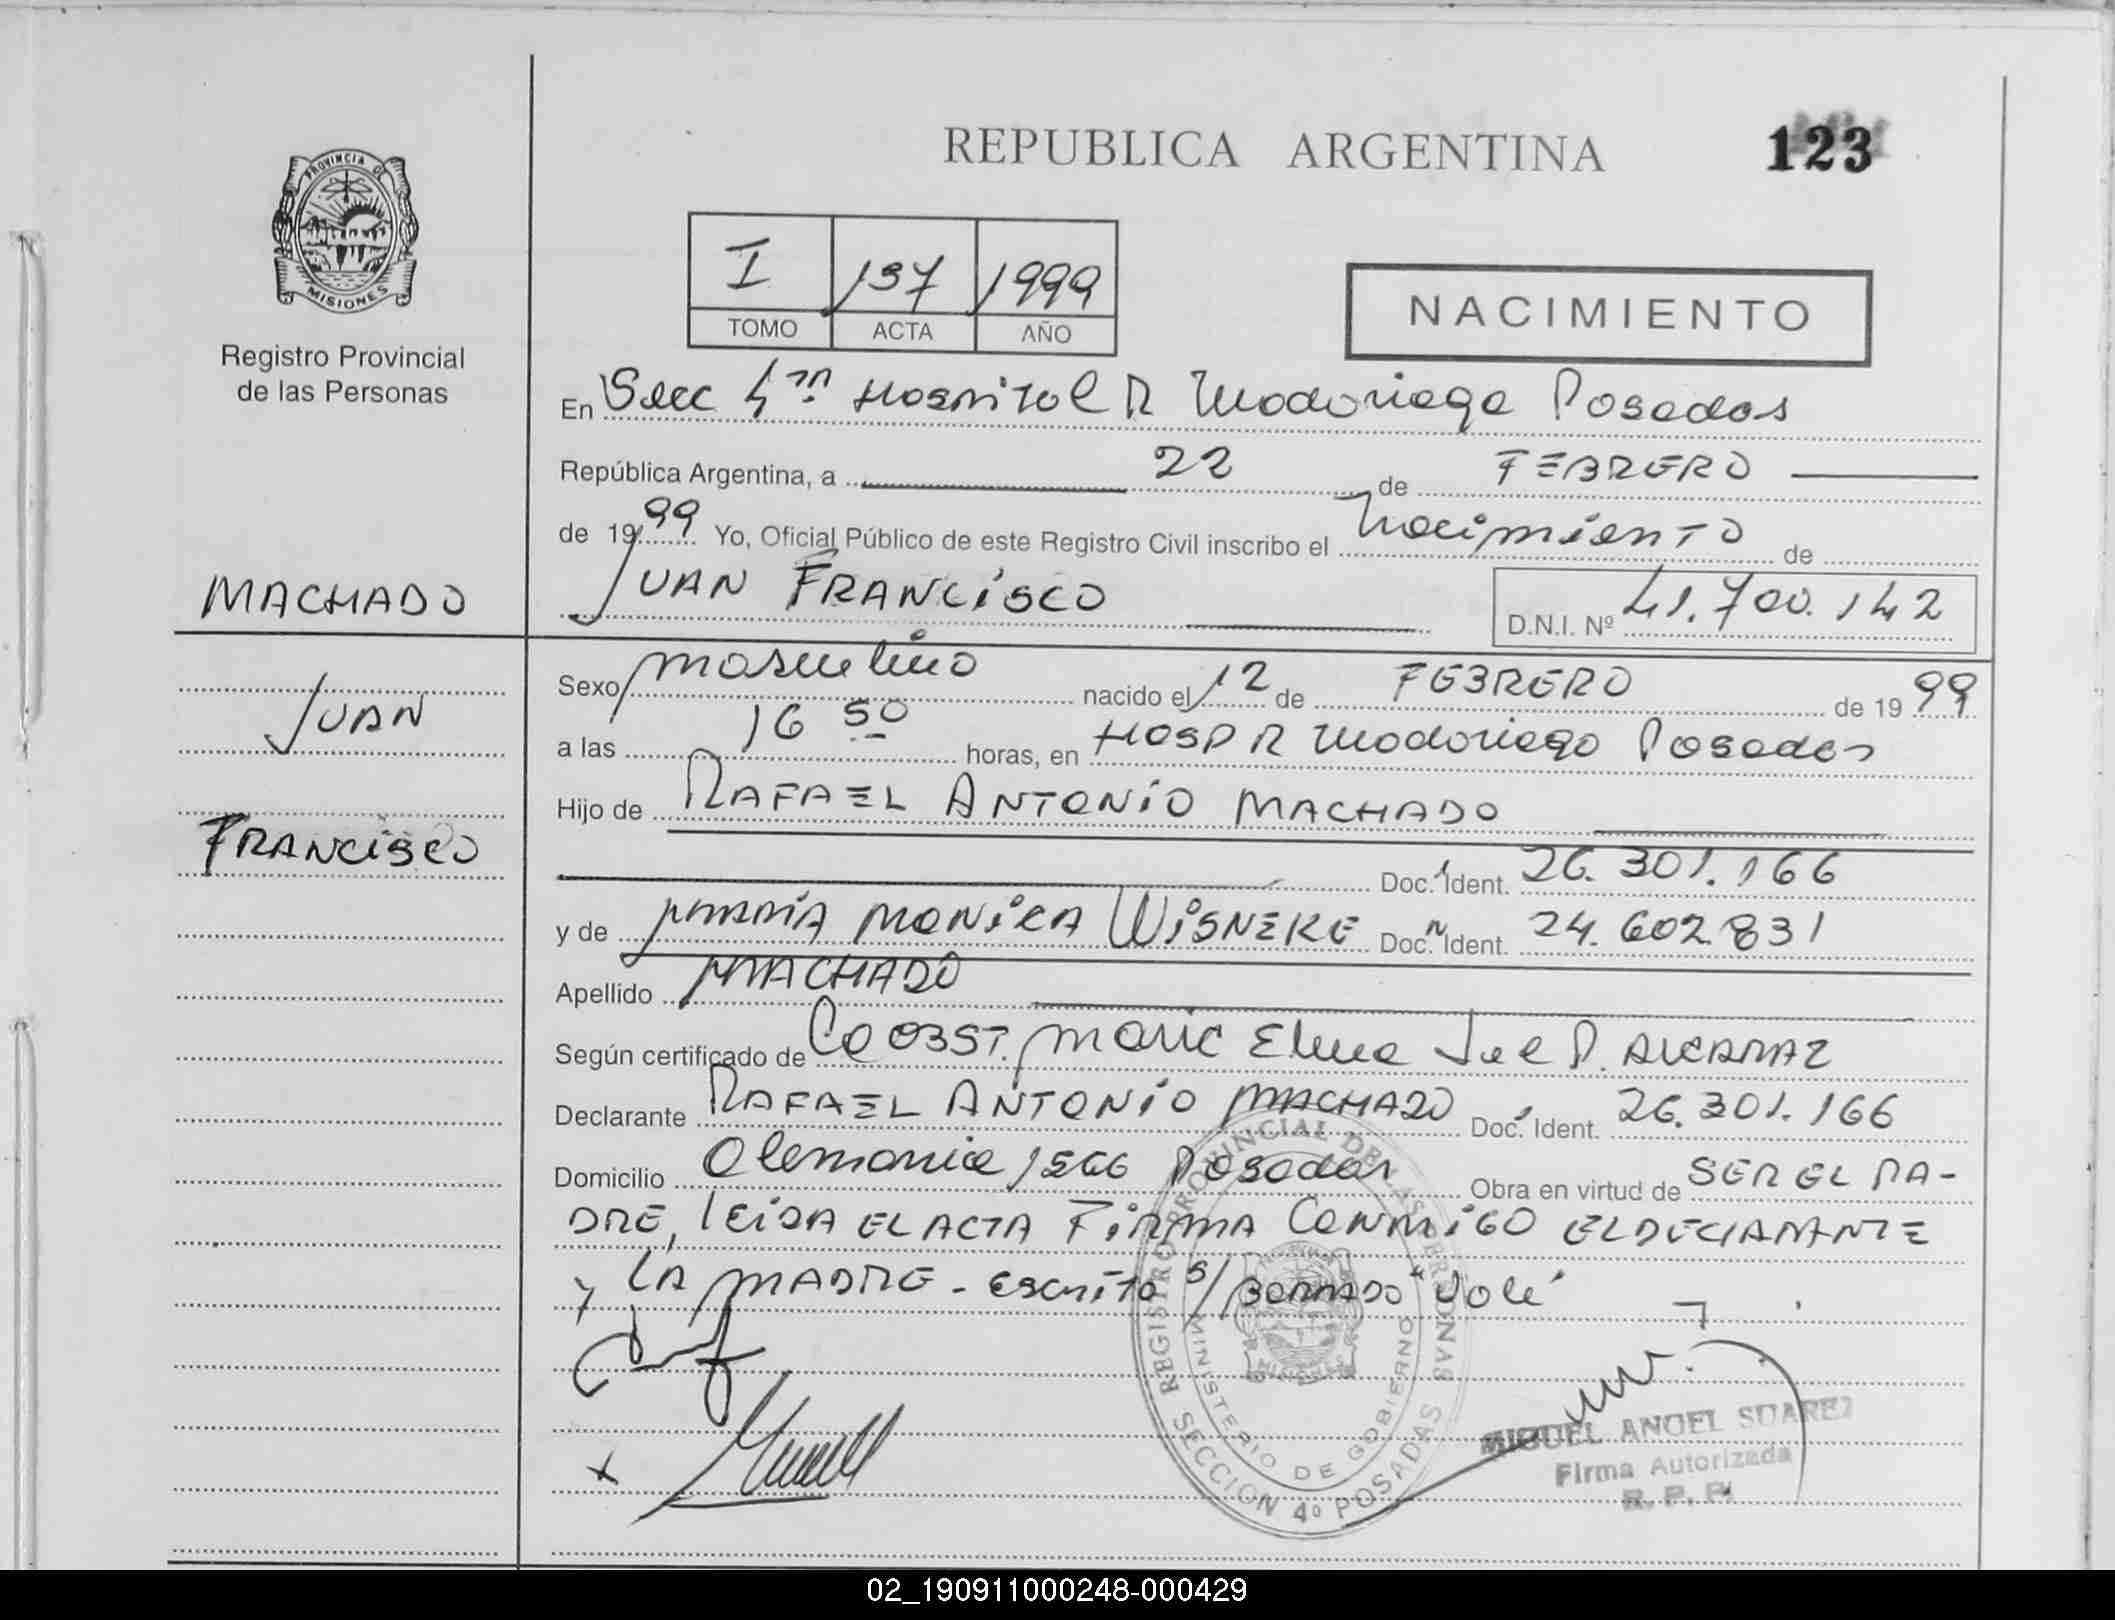 REPUBLICA ARGENTINA
123
PROVINCIA DE
MISIONES
Registro Provincial
de las Personas
I 137 1999
TOMO ACTA AÑO
NACIMIENTO
En Secc 4ta Hospital R Madariaga Posadas
República Argentina, a 22 de FEBRERO
de 1999 Yo, Oficial Público de este Registro Civil inscribo el Nacimiento de
JUAN FRANCISCO
D.N.I. Nº 41.700.142
MACHADO
JUAN
FRANCISCO
Sexo masculino nacido el 12 de FEBRERO de 1999
a las 16 50 horas, en HOSP R Madariaga Posadas
Hijo de RAFAEL ANTONIO MACHADO
Doc. Ident. 26.301.166
y de MARIA MONICA WISNEKE Doc. Ident. 24.602.831
Apellido MACHADO
Según certificado de OBST. Maria Elena P. ALCARAZ
Declarante RAFAEL ANTONIO MACHADO Doc. Ident. 26.301.166
Domicilio Alemania Posadas Obra en virtud de SER EL PA-
DRE, LEIDA EL ACTA FIRMA CONMIGO EL DECLARANTE
y LA MADRE - escrito s/ BORRADO "Vale"
REGISTRO PROVINCIAL DE LAS PERSONAS
MINISTERIO DE GOBIERNO
SECCION 4º POSADAS
MIGUEL ANGEL SUAREZ
Firma Autorizada
R. P. P.
02_190911000248-000429